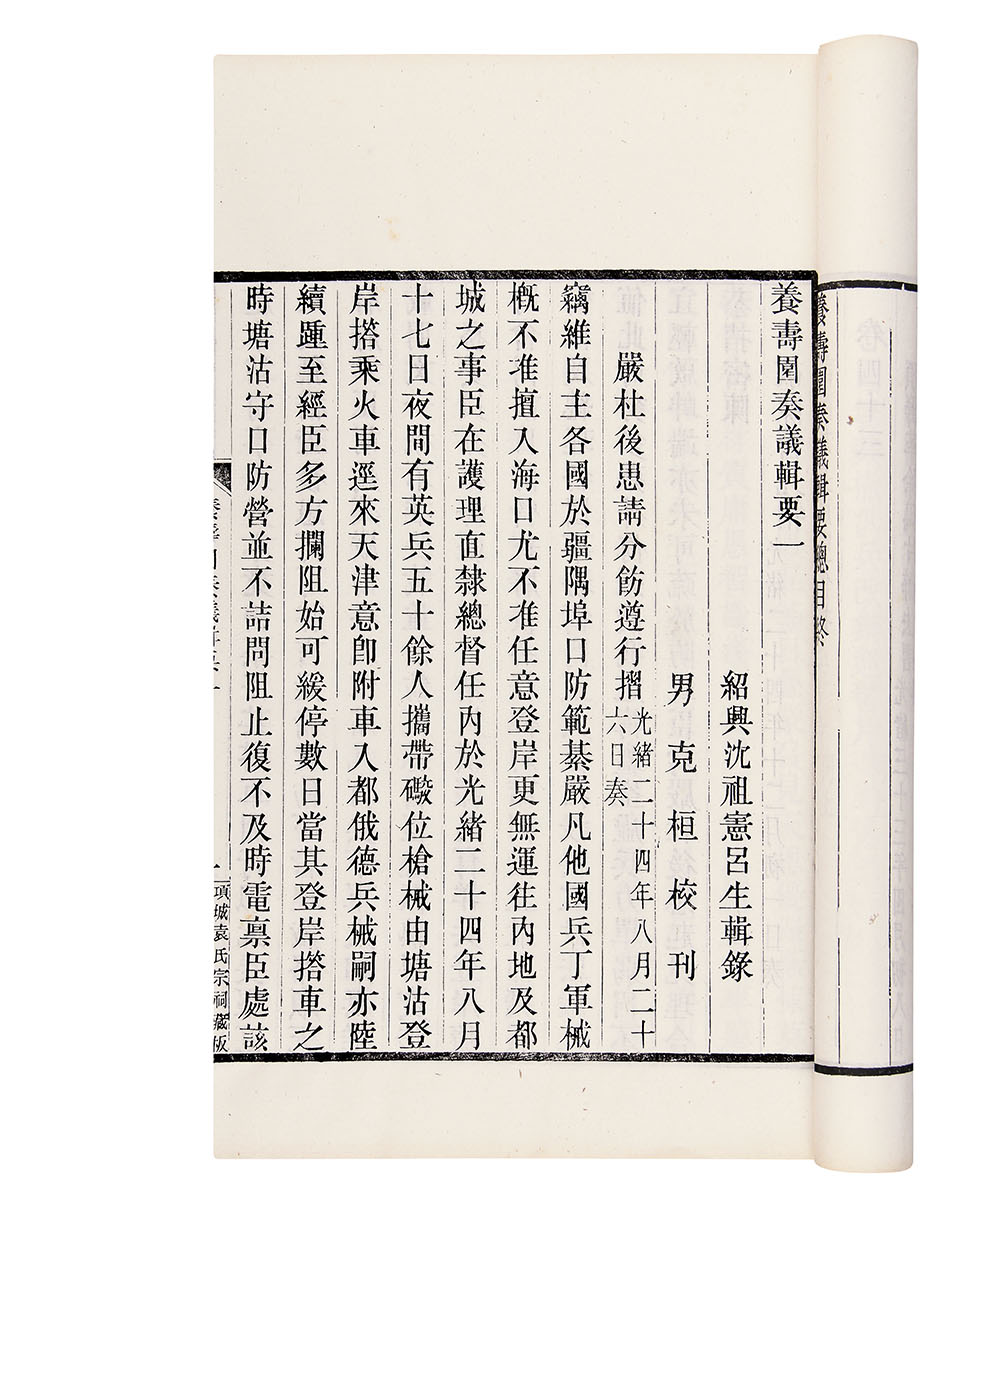 養壽園奏議輯要總目終
養壽園奏議輯要一
紹興沈祖憲呂生輯錄
男克桓校刊
嚴杜後患請分飭遵行摺光緒二十四年八月二十六日奏
竊維自主各國於疆隅埠口防範綦嚴凡他國兵丁軍械
概不准擅入海口尤不准任意登岸更無運往內地及都
城之事臣在護理直隸總督任內於光緒二十四年八月
十七日夜間有英兵五十餘人攜帶礮位槍械由塘沽登
岸搭乘火車逕來天津意卽附車入都俄德兵械嗣亦陸
續踵至經臣多方攔阻始可緩停數日當其登岸搭車之
時塘沽守口防營並不詰問阻止復不及時電稟臣處該
養壽園奏議輯要一
一
項城袁氏宗祠藏板